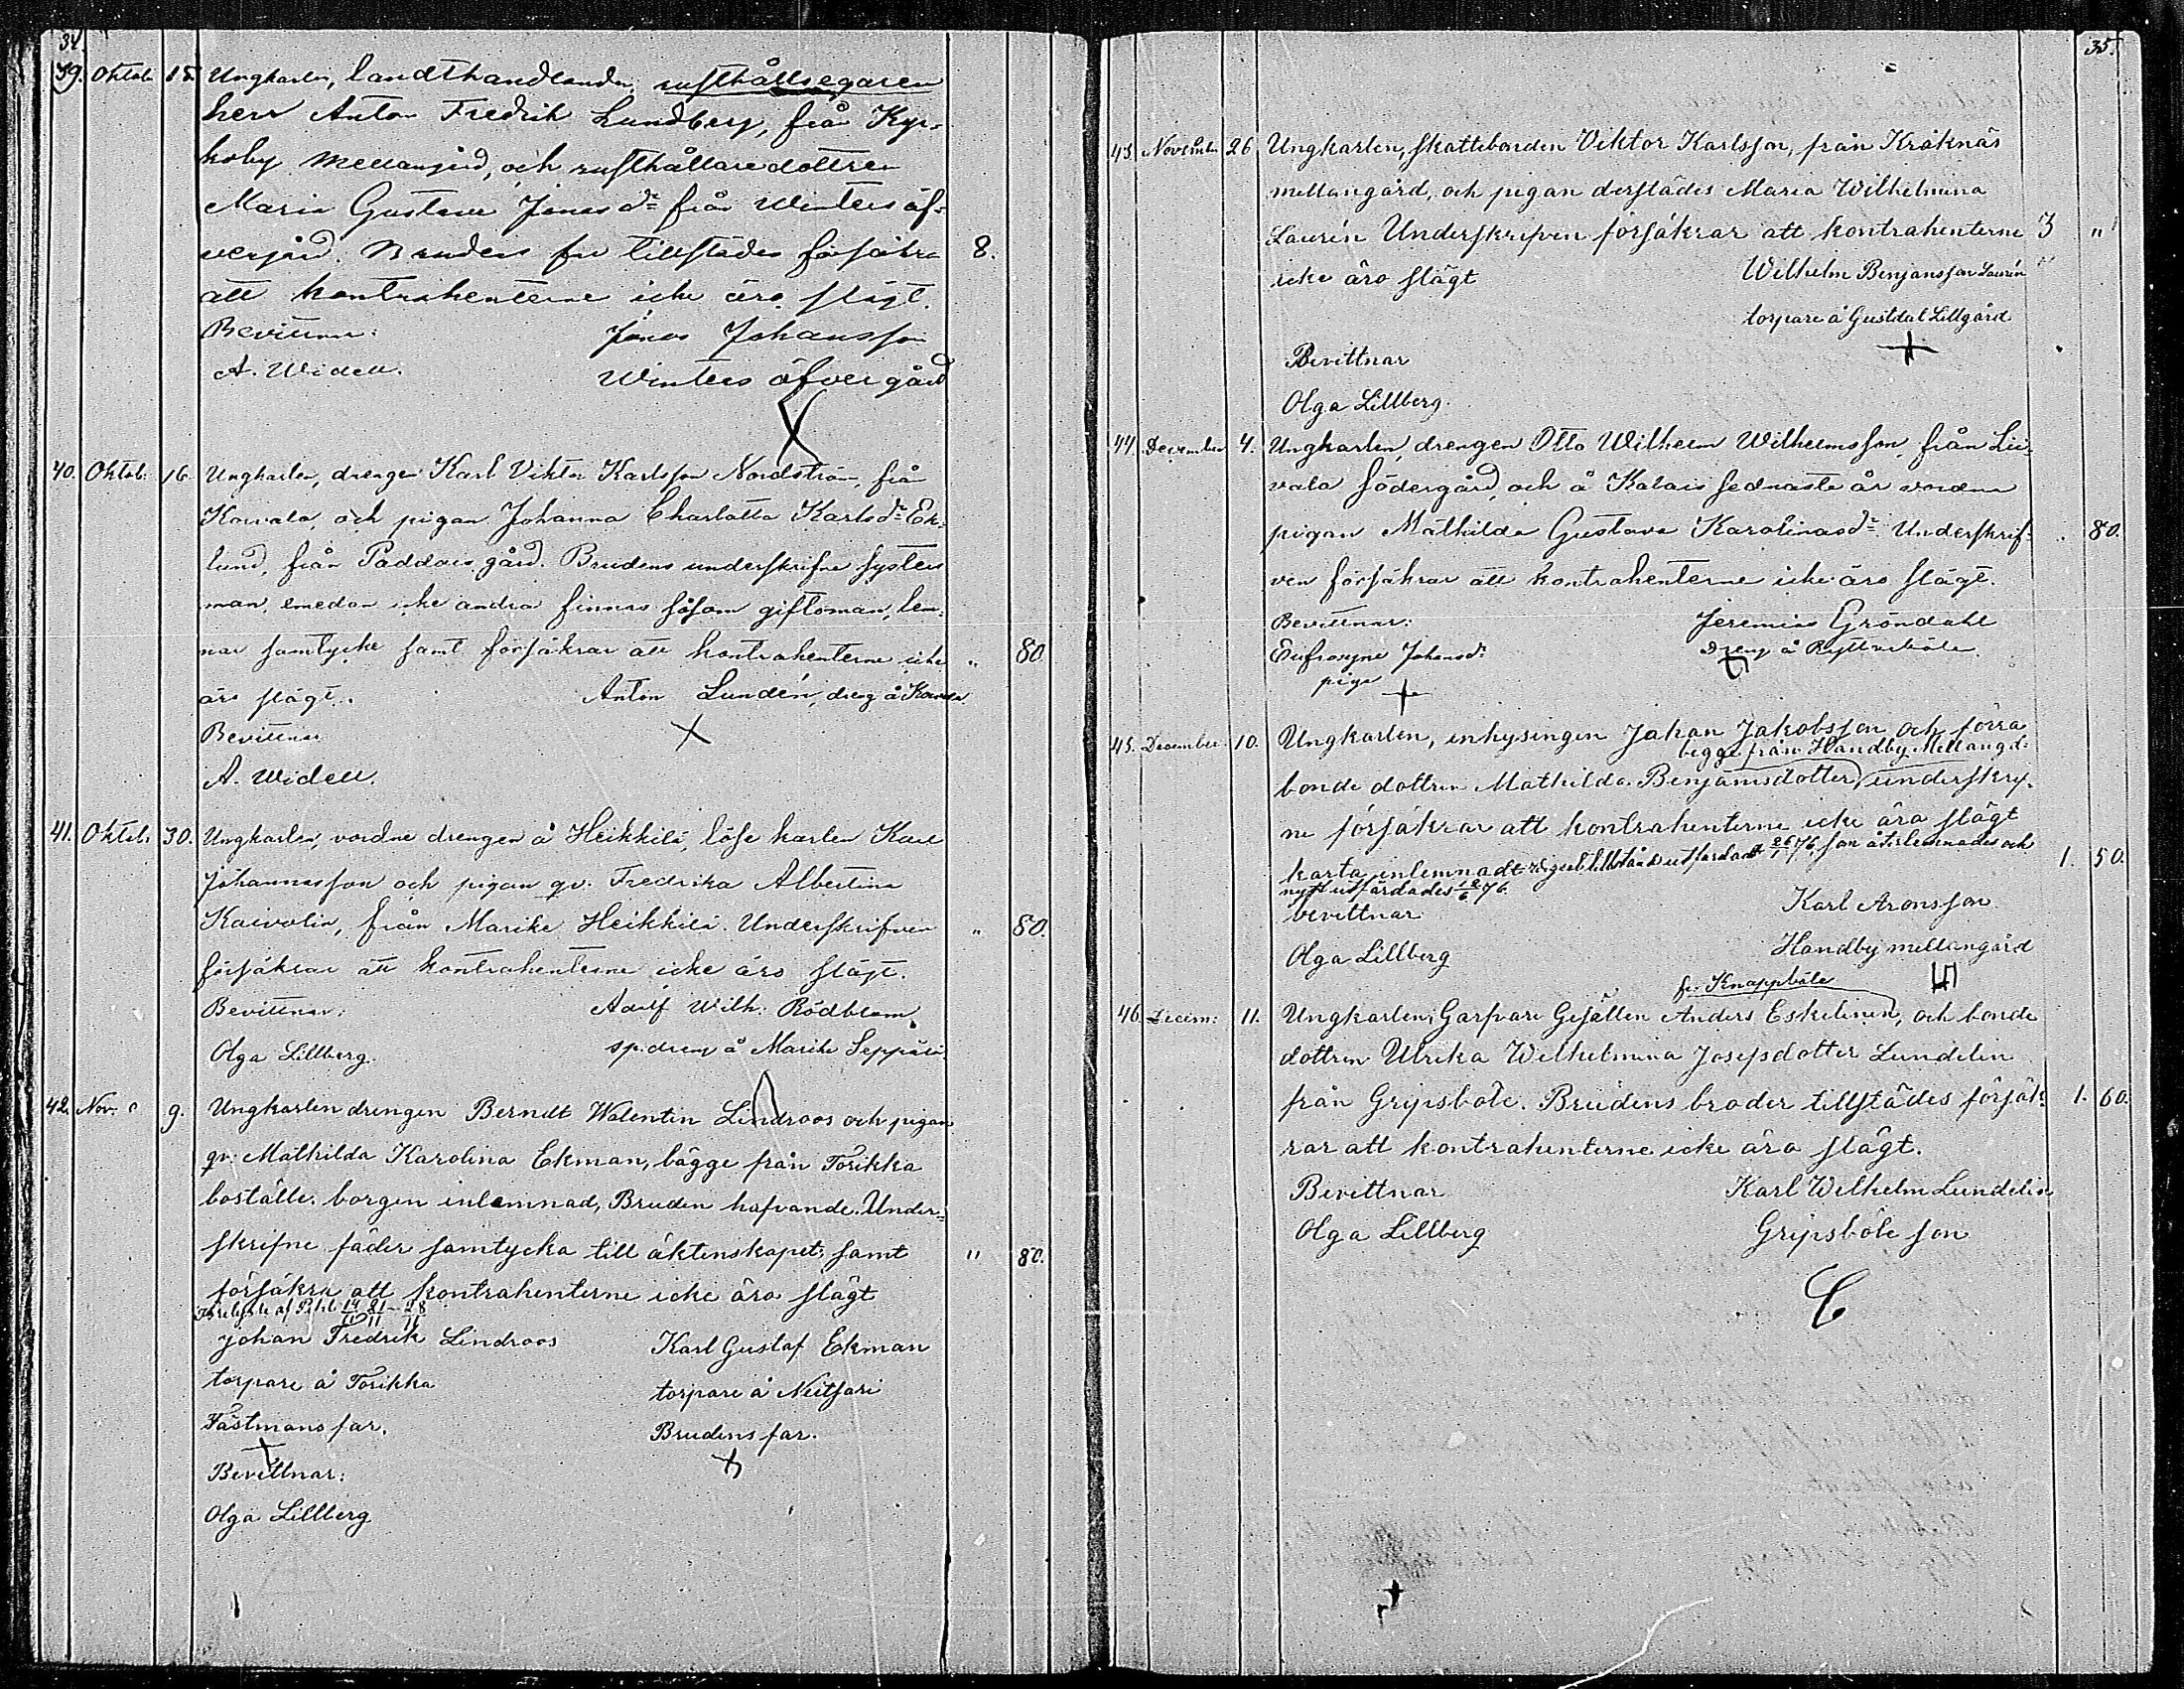 34.
39. Oktob. 15. Ungkarlen, landthandlanden, rusthållsegaren
herr Anton Fredrik Lundberg, från Kyr-
koby Mellangård, och rusthållaredottren
Maria Gustava Jonasdr från Winters öf-
vergård. Brudens far tillstädes försäkra 8.
att kontrahenterne icke äro slägt.
Bevittnar: Jonas Johansson
A. Widell. Winters öfvergård
40. Oktob: 16. Ungkarlen, drengen Karl Viktor Karlsson Nordström, från
Kaivola, och pigan Johanna Charlotta Karlsdr Ek-
lund, från Paddais gård. Brudens underskrifne systers
man, emedan icke andra finnas såsom giftoman, lem-
nar samtycke samt försäkrar att kontrahenterne icke " 80
äro slägt. Anton Lundén, dreng å Kaivola
Bevittnar
A. Widell.
41. Oktob. 30. Ungkarlen, vordne drengen å Heikkilä, löse karlen Karl
Johannesson och pigan qv. Fredrika Albertina
Kaivolin, från Marike Heikkilä. Underskrifven " 80.
försäkrar att kontrahenterne icke äro slägt.
Bevittnar: Adolf Wilh: Rödblom
Olga Lillberg. sp. dreng å Marike Seppälä
42. Nov. 9. Ungkarlen drengen Berndt Walentin Lindroos och pigan
qv. Mathilda Karolina Ekman, bägge från Torikka
boställe. borgen inlemnad, Bruden hafvande. Under-
skrifne fäder samtycka till äktenskapet, samt " 80.
försäkra att kontrahenterne icke äro slägt
Johan Fredrik Lindroos Karl Gustaf Ekman
torpare å Torikka torpare å Neitsari
Fästmans far. Brudens far.
Bevittnar:
Olga Lillberg
35.
43. November 26 Ungkarlen, skattebonden Viktor Karlsson, från Kråknäs
mellangård, och pigan derstädes Maria Wilhelmina
Laurén Underskrifven försäkrar att kontrahenterne 3 "
icke äro slägt Wilhelm Benjamsson Laurén
torpare å Gustdal Lillgård
Bevittnar
Olga Lillberg.
44. December 4. Ungkarlen, drengen Otto Wilhelm Wilhelmsson, från Lii-
vala Södergård, och å Kalais sednaste år vordna
pigan Mathilda Gustava Karolinasdr. Underskrif- 80.
ven försäkrar att kontrahenterne icke äro slägt.
Bevittnar: Jeremias Gröndahl
Eufrosyne Johansdr dreng å Ryttarböle
piga
45. December 10. Ungkarlen, inhysingen Johan Jakobsson och förra
begge från Handby Mellangd:
bonde dottren Mathilda Benjamsdotter, underskrif-
ne försäkrar att kontrahenterne icke äro slägt
karta inlemnadt utfärdadt 26/1 76, som återlemnades och 1. 50.
nytt utfärdades 12/6 76.
bevittnar Karl Aronsson
Olga Lillberg Handby mellangård
fr. Knappböle
46. Decem: 11. Ungkarlen, Garfvare Gesällen Anders Eskelinen, och bonde
dottren Ulrika Wilhelmina Josefsdotter Lundelin
från Gripsböle. Brudens broder tillstädes försäk- 1. 60.
rar att kontrahenterne icke äro slägt.
Bevittnar Karl Wilhelm Lundelin
Olga Lillberg Gripsböle son